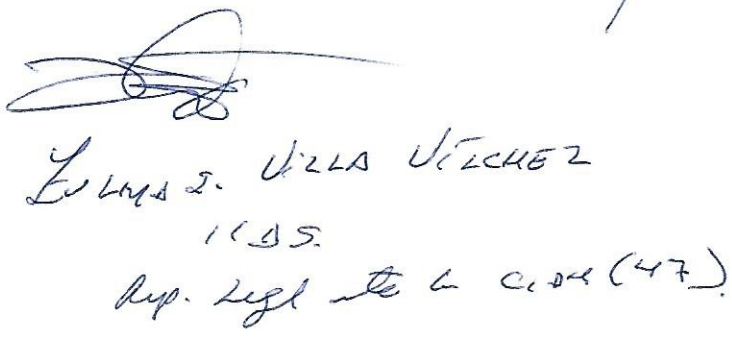 Zulma S. Villa Vílchez
IIDS.
Rep. Legl ante la CIDH (47)